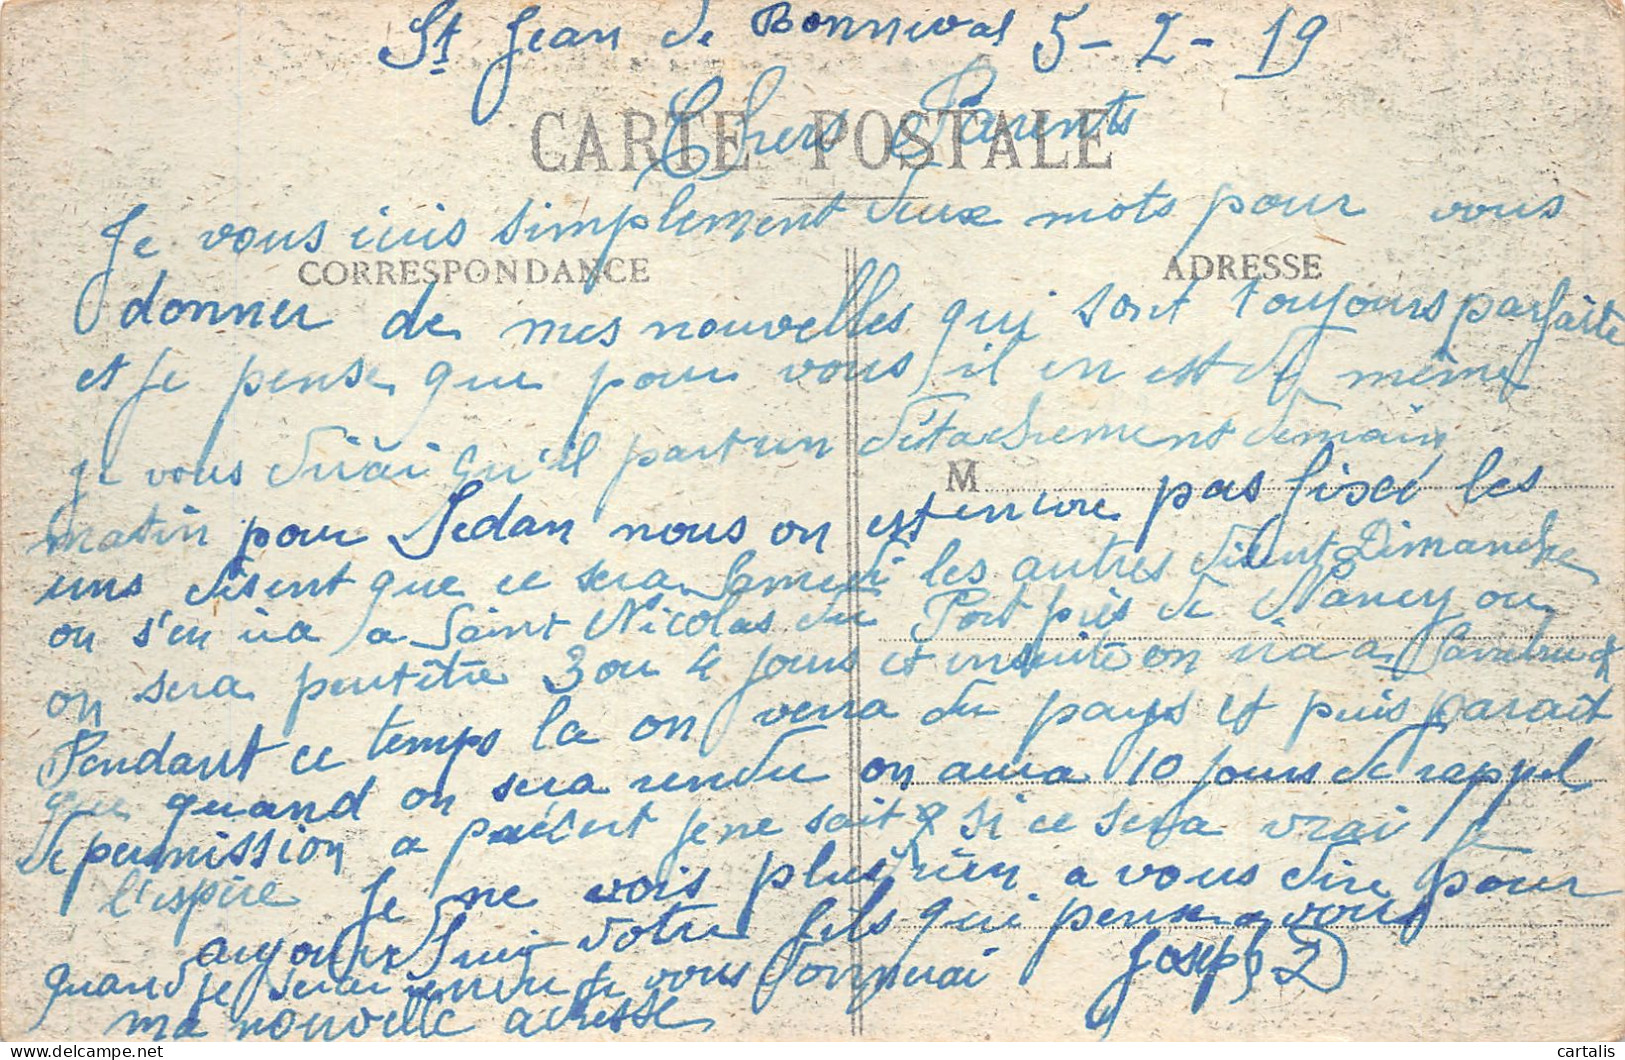 St Jean de Bonneval 5-2-19
CARTE POSTALE
Chers Parents
Je vous écris simplement deux mots pour vous
CORRESPONDANCE
ADRESSE
donner de mes nouvelles qui sont toujours parfaite
et je pense que pour vous il en est de même
je vous dirai qu'il part un détachement demain
M
matin pour Sedan nous on est encore pas fixé les
uns disent que ce sera Samedi les autres disent Dimanche
on s'en ira a Saint Nicolas du Port près de Nancy ou
on sera peut être 3 ou 4 jours et ensuite on ira a
Pendant ce temps la on verra du pays et puis parait
que quand on sera rendu on aura 10 jours de rappel
de permission a je ne sait si ce sera vrai
l'espère Je ne vois plus rien a vous dire pour
aujourd'hui votre fils qui pense a vous
Joseph D
quand je serai rendu je vous donnerai
ma nouvelle adresse
cartalis